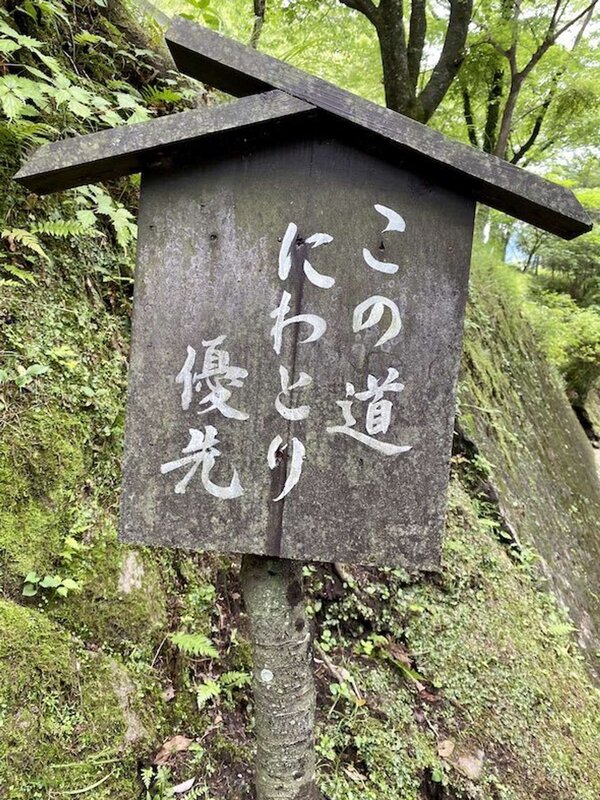 この道
にわとり
優先